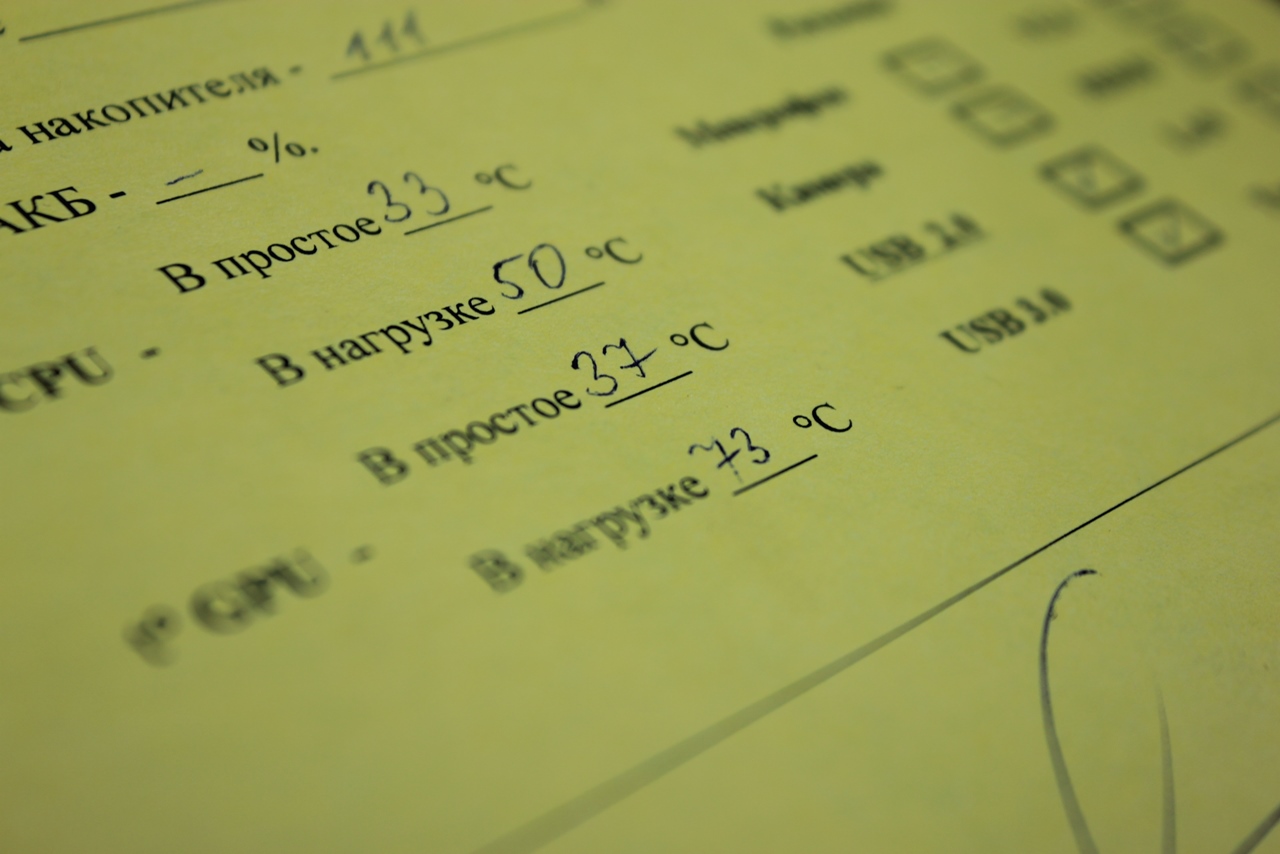 накопителя - 111
АКБ - — %.
CPU - В простое 33 °C
В нагрузке 50 °C
t° GPU - В простое 37 °C
В нагрузке 73 °C
Микрофон
Камера
USB 2.0
USB 3.0